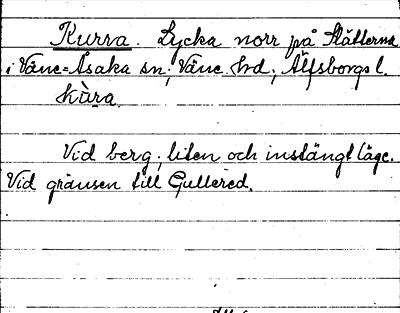 Kurra. Lycka norr på Slätterna
i Väne=Åsaka sn; Väne hd; Älfsborgs l.
kùra.
Vid berg; liten och instängt läge.
Vid gränsen till Gullered.